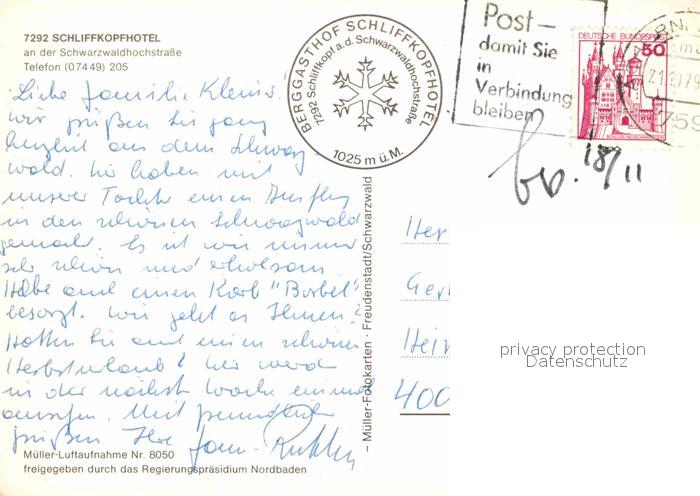 7292 SCHLIFFKOPFHOTEL
an der Schwarzwaldhochstraße
Telefon (07449) 205
BERGGASTHOF SCHLIFFKOPFHOTEL
7292 Schliffkopf a.d. Schwarzwaldhochstraße
1025 m ü.M.
Post-
damit Sie
in
Verbindung
bleiben
DEUTSCHE BUNDESPOST
50
759
18/11
Liebe Familie
wir grüßen Sie ganz
herzlich aus dem Schwarz
wald. Wir haben mit
unserer Tochter einen Ausflug
in den schönen Schwarzwald
gemacht. Es ist wie immer
sehr schön und erholsam
Habe auch einen Korb "
besorgt. Wie geht es Ihnen?
Hatten Sie auch einen schönen
Herbsturlaub? Wir werd
in der nächst Woche einmal
anrufen. Mit
grüßen Ihre Fam.
Her
Ger
Hein
400
– Müller-Fotokarten · Freudenstadt/Schwarzwald
privacy protection
Datenschutz
Müller-Luftaufnahme Nr. 8050
freigegeben durch das Regierungspräsidium Nordbaden